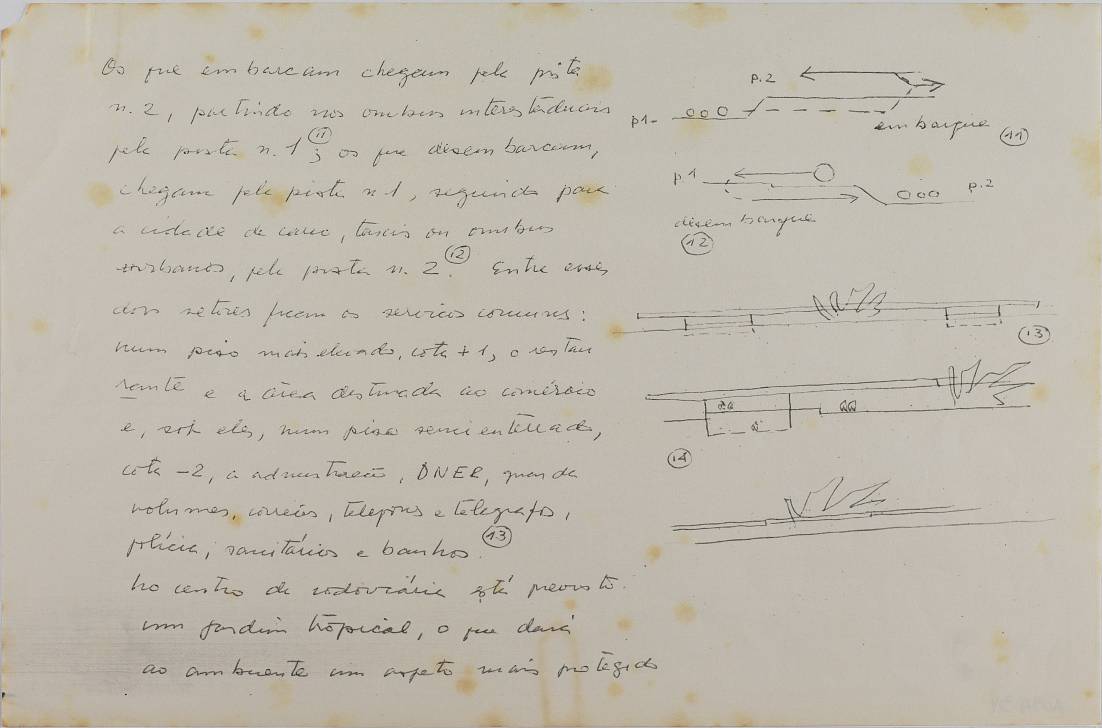 Os que embarcam chegam pela pista
n. 2, partindo nos ombus interestaduais
pela pista n. 1 (11); os que desembarcam,
chegam pela pista n 1, seguindo para
a cidade de carro, taxis ou ombus
urbanos, pela pista n. 2. (12) Entre esses
dois setores ficam os serviços comuns:
num piso mais elevado, cota +1, o restau
rante e a área destinada ao comércio
e, sob eles, num piso semienterrado,
cota -2, a admnstração, DNER, guarda
volumes, correios, telefones e telegrafos,
polícia, sanitários e banhos. (13)
No centro da rodoviária está previsto
um jardim tropical, o que dará
ao ambiente um aspeto mais protegido
p.2
p1-
embarque
11
p.1
p.2
desembarque
12
13
14